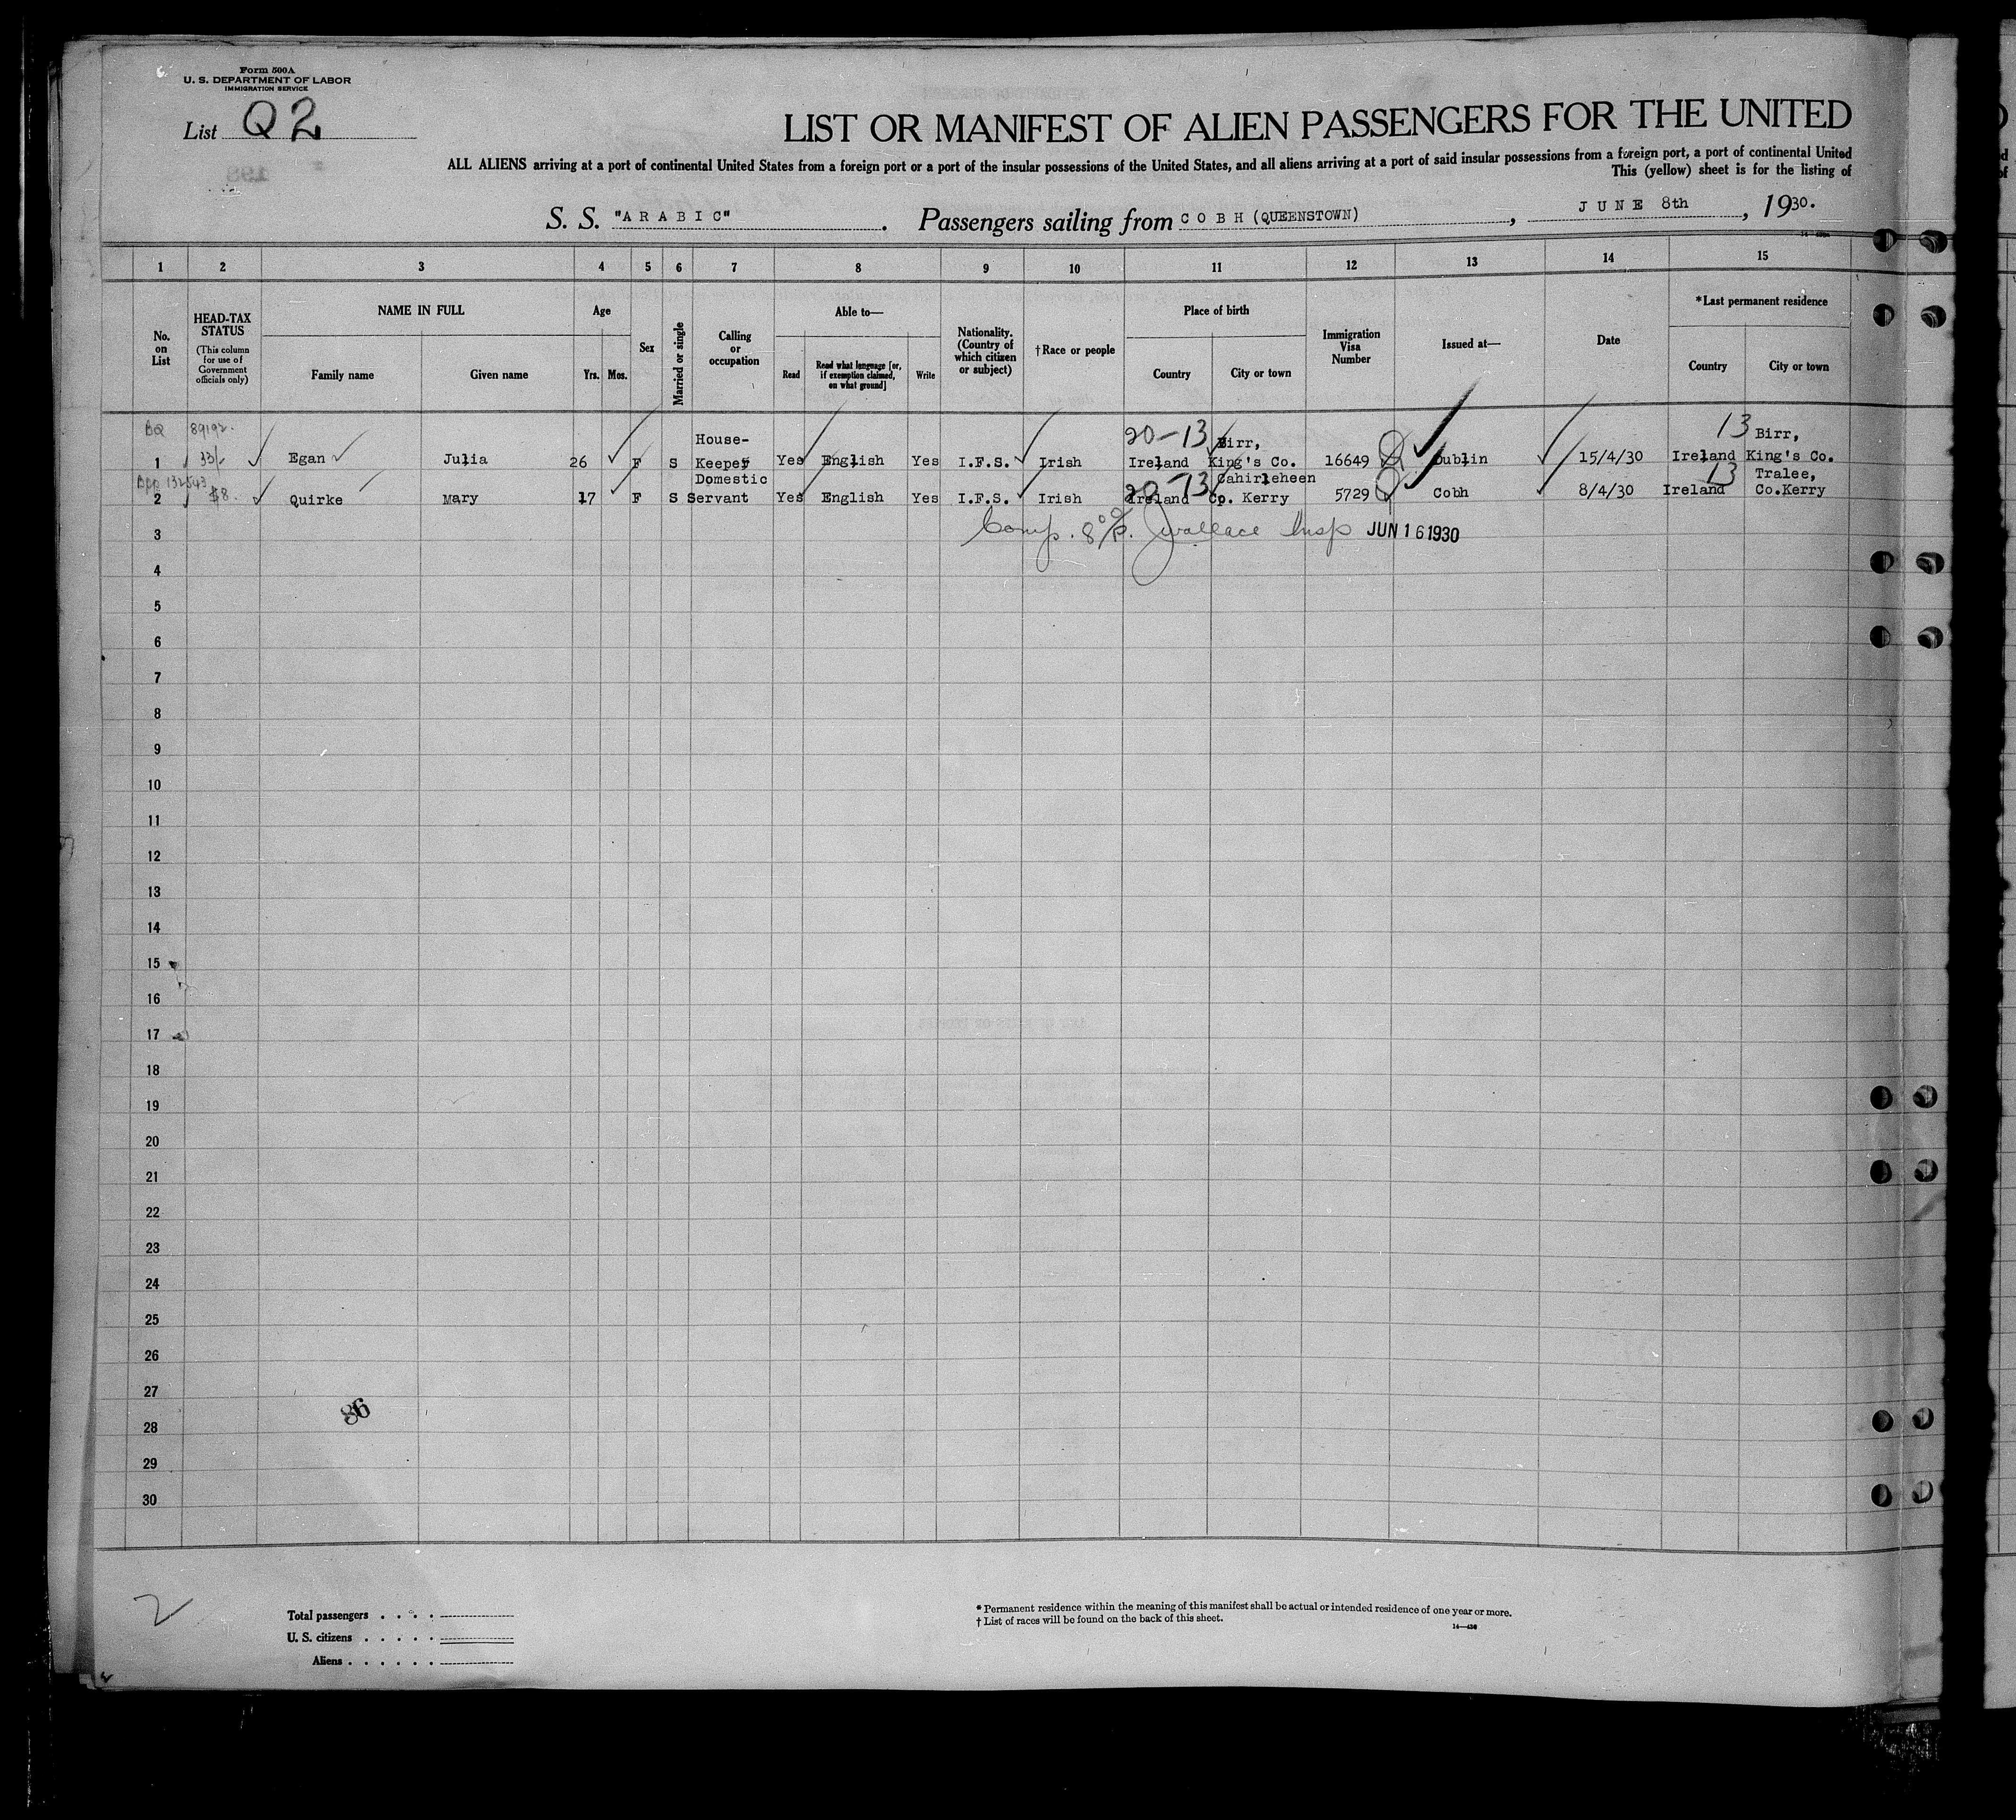 Form 500A
U. S. DEPARTMENT OF LABOR
IMMIGRATION SERVICE
List Q2
LIST OR MANIFEST OF ALIEN PASSENGERS FOR THE UNITED
ALL ALIENS arriving at a port of continental United States from a foreign port or a port of the insular possessions of the United States, and all aliens arriving at a port of said insular possessions from a foreign port, a port of continental United
This (yellow) sheet is for the listing of
S. S. "ARABIC". Passengers sailing from COBH (QUEENSTOWN), JUNE 8th, 1930.
1 2 3 4 5 6 7 8 9 10 11 12 13 14 15
No. on List
HEAD-TAX STATUS
(This column for use of Government officials only)
NAME IN FULL
Family name
Given name
Age
Yrs. Mos.
Sex
Married or single
Calling or occupation
Able to—
Read
Read what language [or, if exemption claimed, on what ground]
Write
Nationality. (Country of which citizen or subject)
†Race or people
Place of birth
Country
City or town
Immigration Visa Number
Issued at—
Date
*Last permanent residence
Country
City or town
BQ 89192.
20-13 13
House- Birr, Birr,
1 33/- Egan Julia 26 F S Keeper Yes English Yes I.F.S. Irish Ireland King's Co. 16649 Dublin 15/4/30 Ireland King's Co.
132543 Domestic 20-13 Cahirleheen 13 Tralee,
2 $8. Quirke Mary 17 F S Servant Yes English Yes I.F.S. Irish Ireland Co. Kerry 5729 Cobh 8/4/30 Ireland Co.Kerry
3 Comp. Wallace Insp JUN 16 1930
4
5
6
7
8
9
10
11
12
13
14
15
16
17
18
19
20
21
22
23
24
25
26
27
86
28
29
30
2
Total passengers . . . .
U. S. citizens . . . . .
Aliens . . . . . .
* Permanent residence within the meaning of this manifest shall be actual or intended residence of one year or more.
† List of races will be found on the back of this sheet.